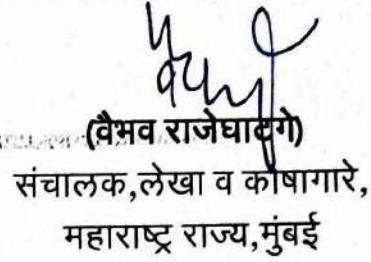 (वैभव राजेघाटगे)
संचालक,लेखा व कोषागारे,
महाराष्ट्र राज्य,मुंबई